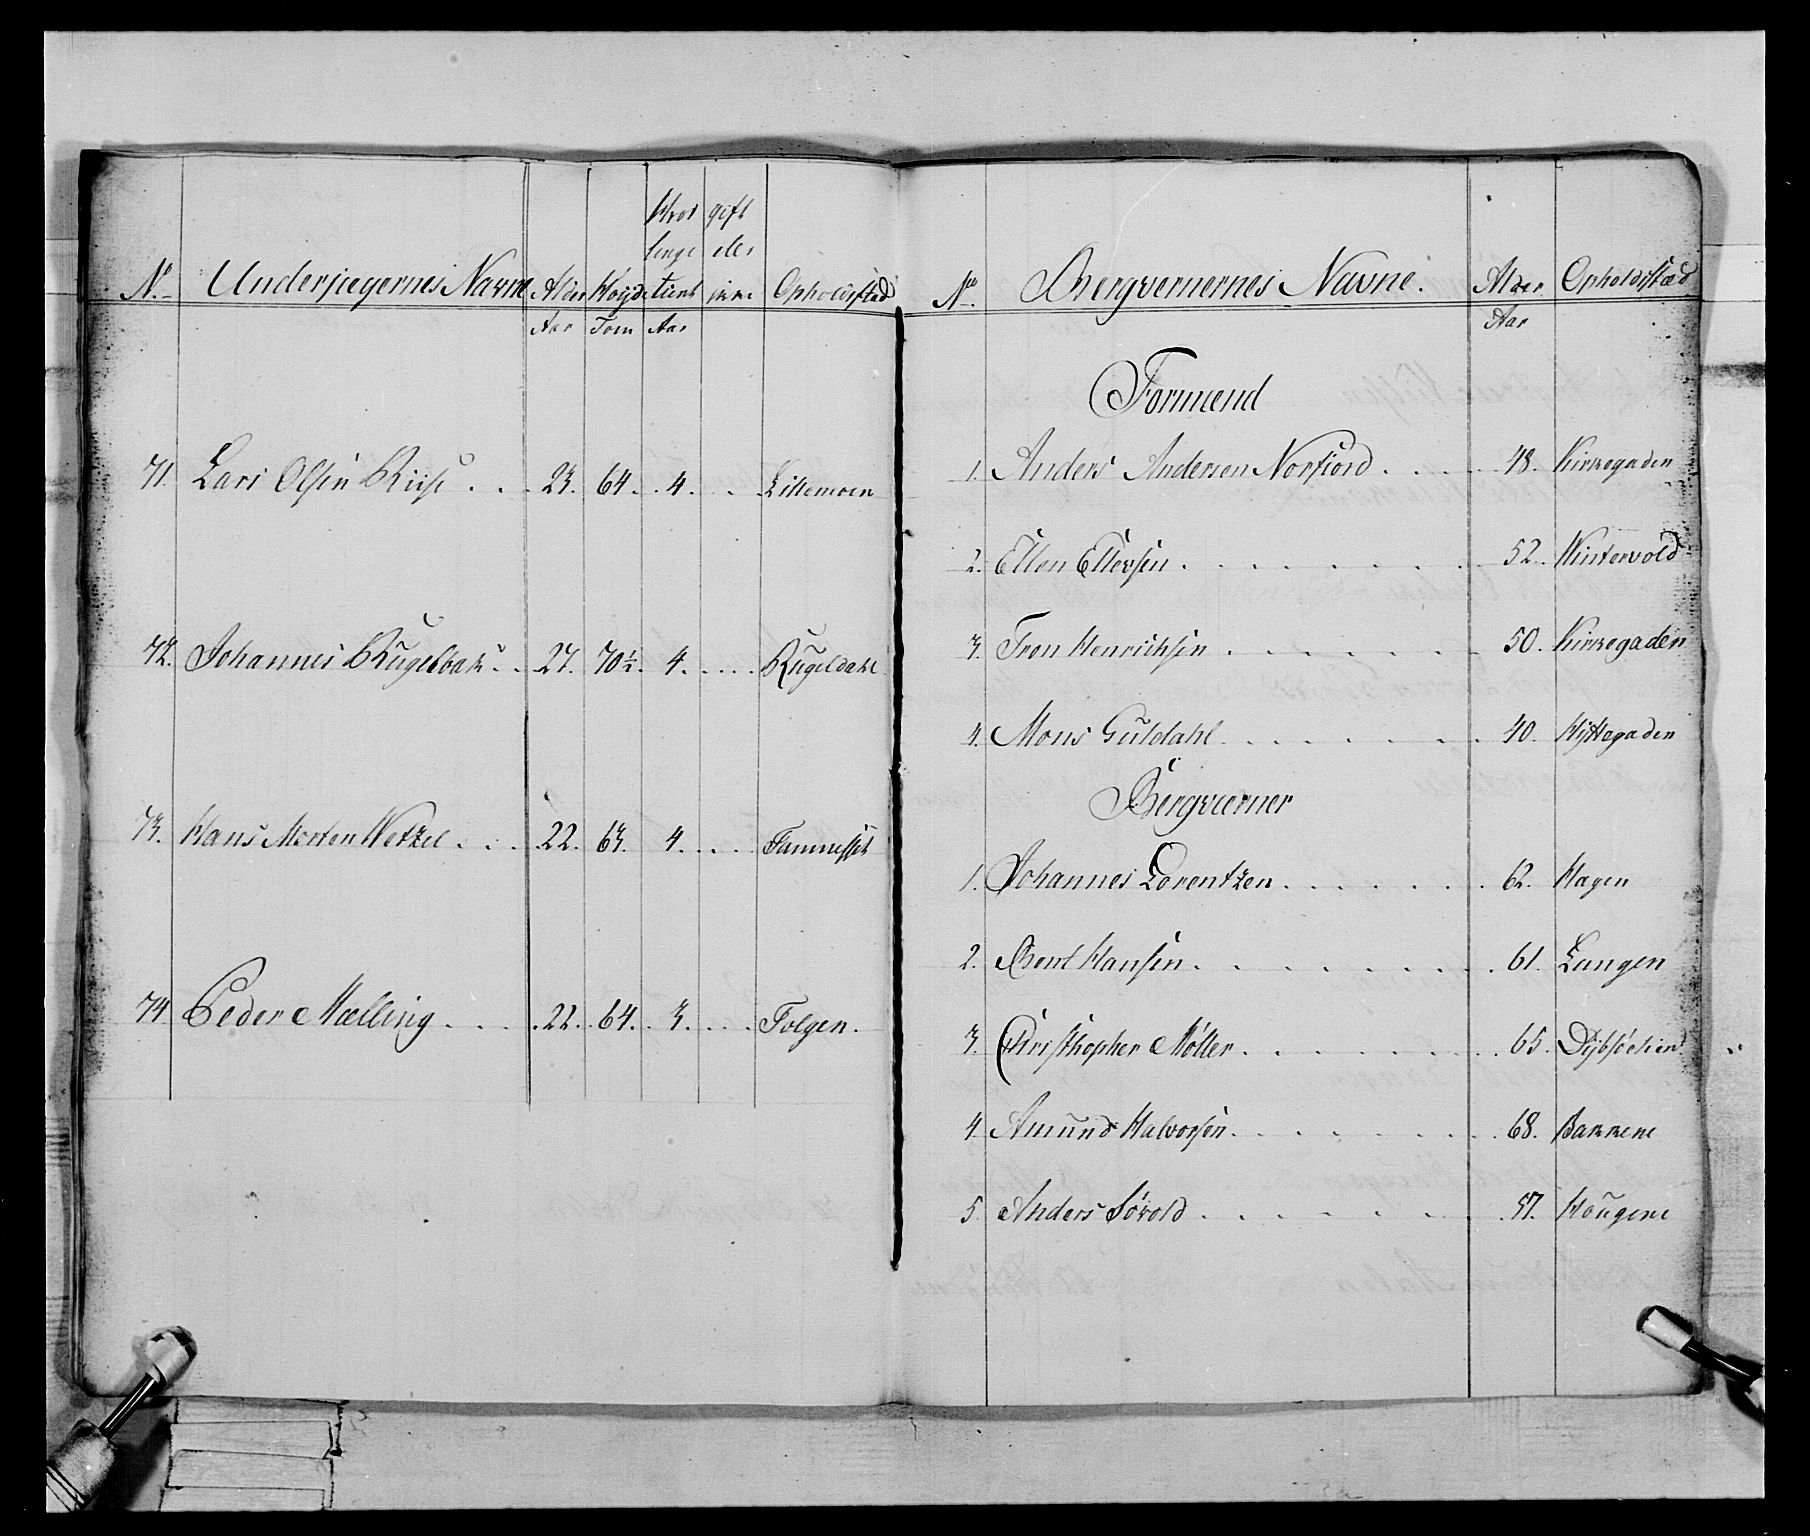 Hvor gift
lenge eller
No Underjægernes Navne Alder Høyde tient ikke Opholdsstæd
Aar Tom Aar
71. Lars Olsen Riise . . . 23. 64. . 4. . . . Lillemoen
72. Johannes Rugelbak . . 27. 70 1/2. 4. . . . . Rugeldahl
73. Hans Morten Wetzel . . . 22. 63. 4. . . . Tamnesset
74. Peder Mælling . . . . 22. 64. . 3. . . . Tolgen.
No. Bergvernernes Navne. Alder Opholdsstæd
Aar
Formænd
1. Anders Andersen Norfiord . . . . 48. Kirkegaden
2. Ellen Ellevsen . . . . . . . . . 52. Wintervold
3. Tron Henrichsen . . . . . . . . 50. Kirkegaden
4. Mons Guldahl . . . . . . . . 40. Hyttegaden
Bergværner
1. Johannes Lorentzen . . . . . . . 62. Hagen
2. Bent Hansen . . . . . . . . . 61. Langen
3. Christhopher Møller . . . . . . . . 65. Dybsöelien
4. Amund Halvorsen . . . . . . . . 68. Bakkene
5. Anders Søvold . . . . . . . . 57. Haugene